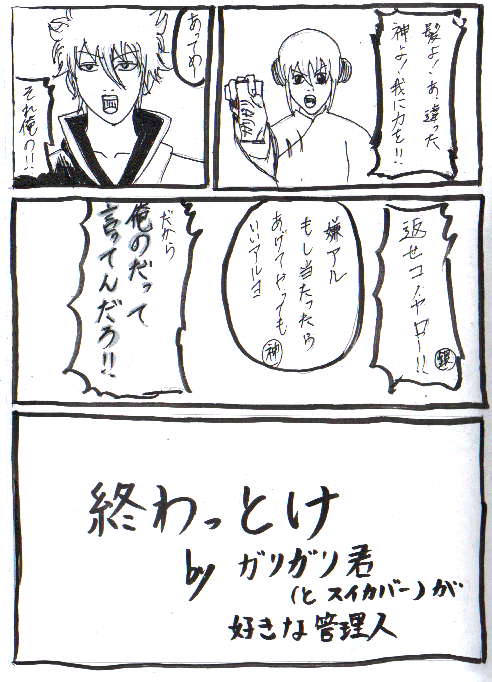 髪よ!あ違った
神よ!我に力を!!
あってめー
それ俺の!!
返せコノヤロー!!
銀
嫌アル
もし当たったら
あげてやっても
いいアルヨ
神
だから
俺のだって
言ってんだろ!!
終わっとけ
by ガリガリ君
(と スイカバー)が
好きな管理人